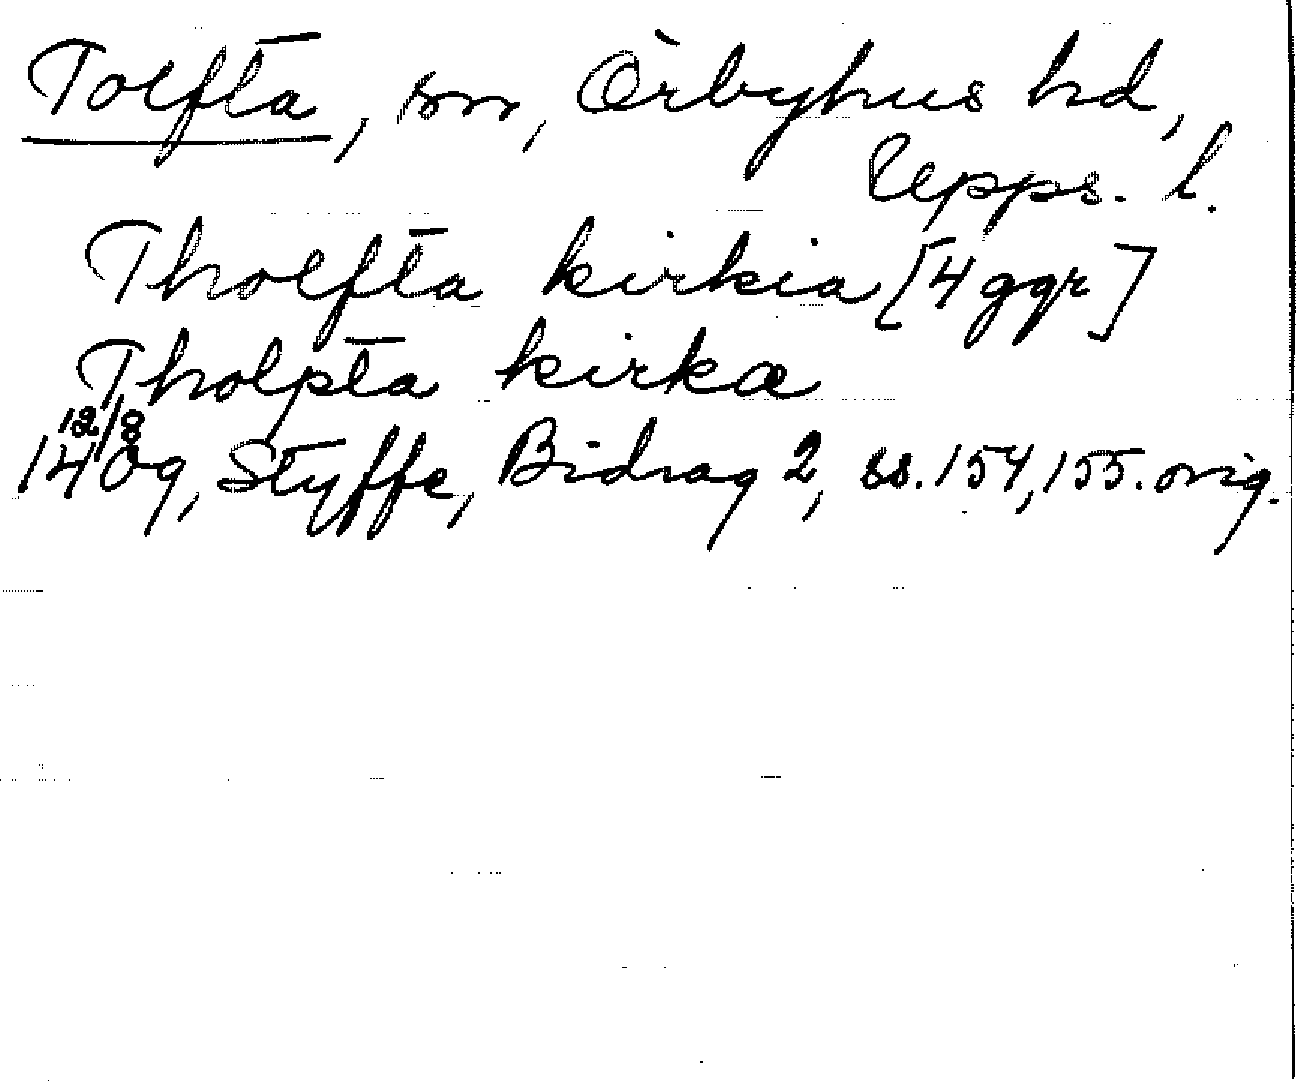 Tolfta, sn, Örbyhus hd,
Upps. l.
Tholfta kirkia [4 ggr]
Tholpta kirkæ
12/8
1409, Styffe, Bidrag 2, ss. 154, 155. orig.